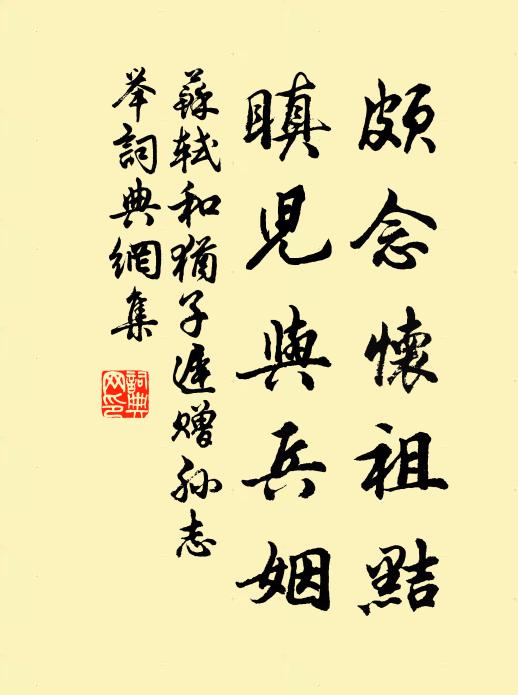 頗念懷祖黠
瞋兒與兵姻
蘇軾和猶子遲贈孫志
举詞典網集
詞典網印